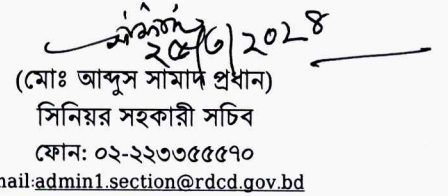 ২৫/৩/২০২৪
(মোঃ আব্দুস সামাদ প্রধান)
সিনিয়র সহকারী সচিব
ফোন: ০২-২২৩৩৫৫৫৭০
nail:admin1.section@rdcd.gov.bd